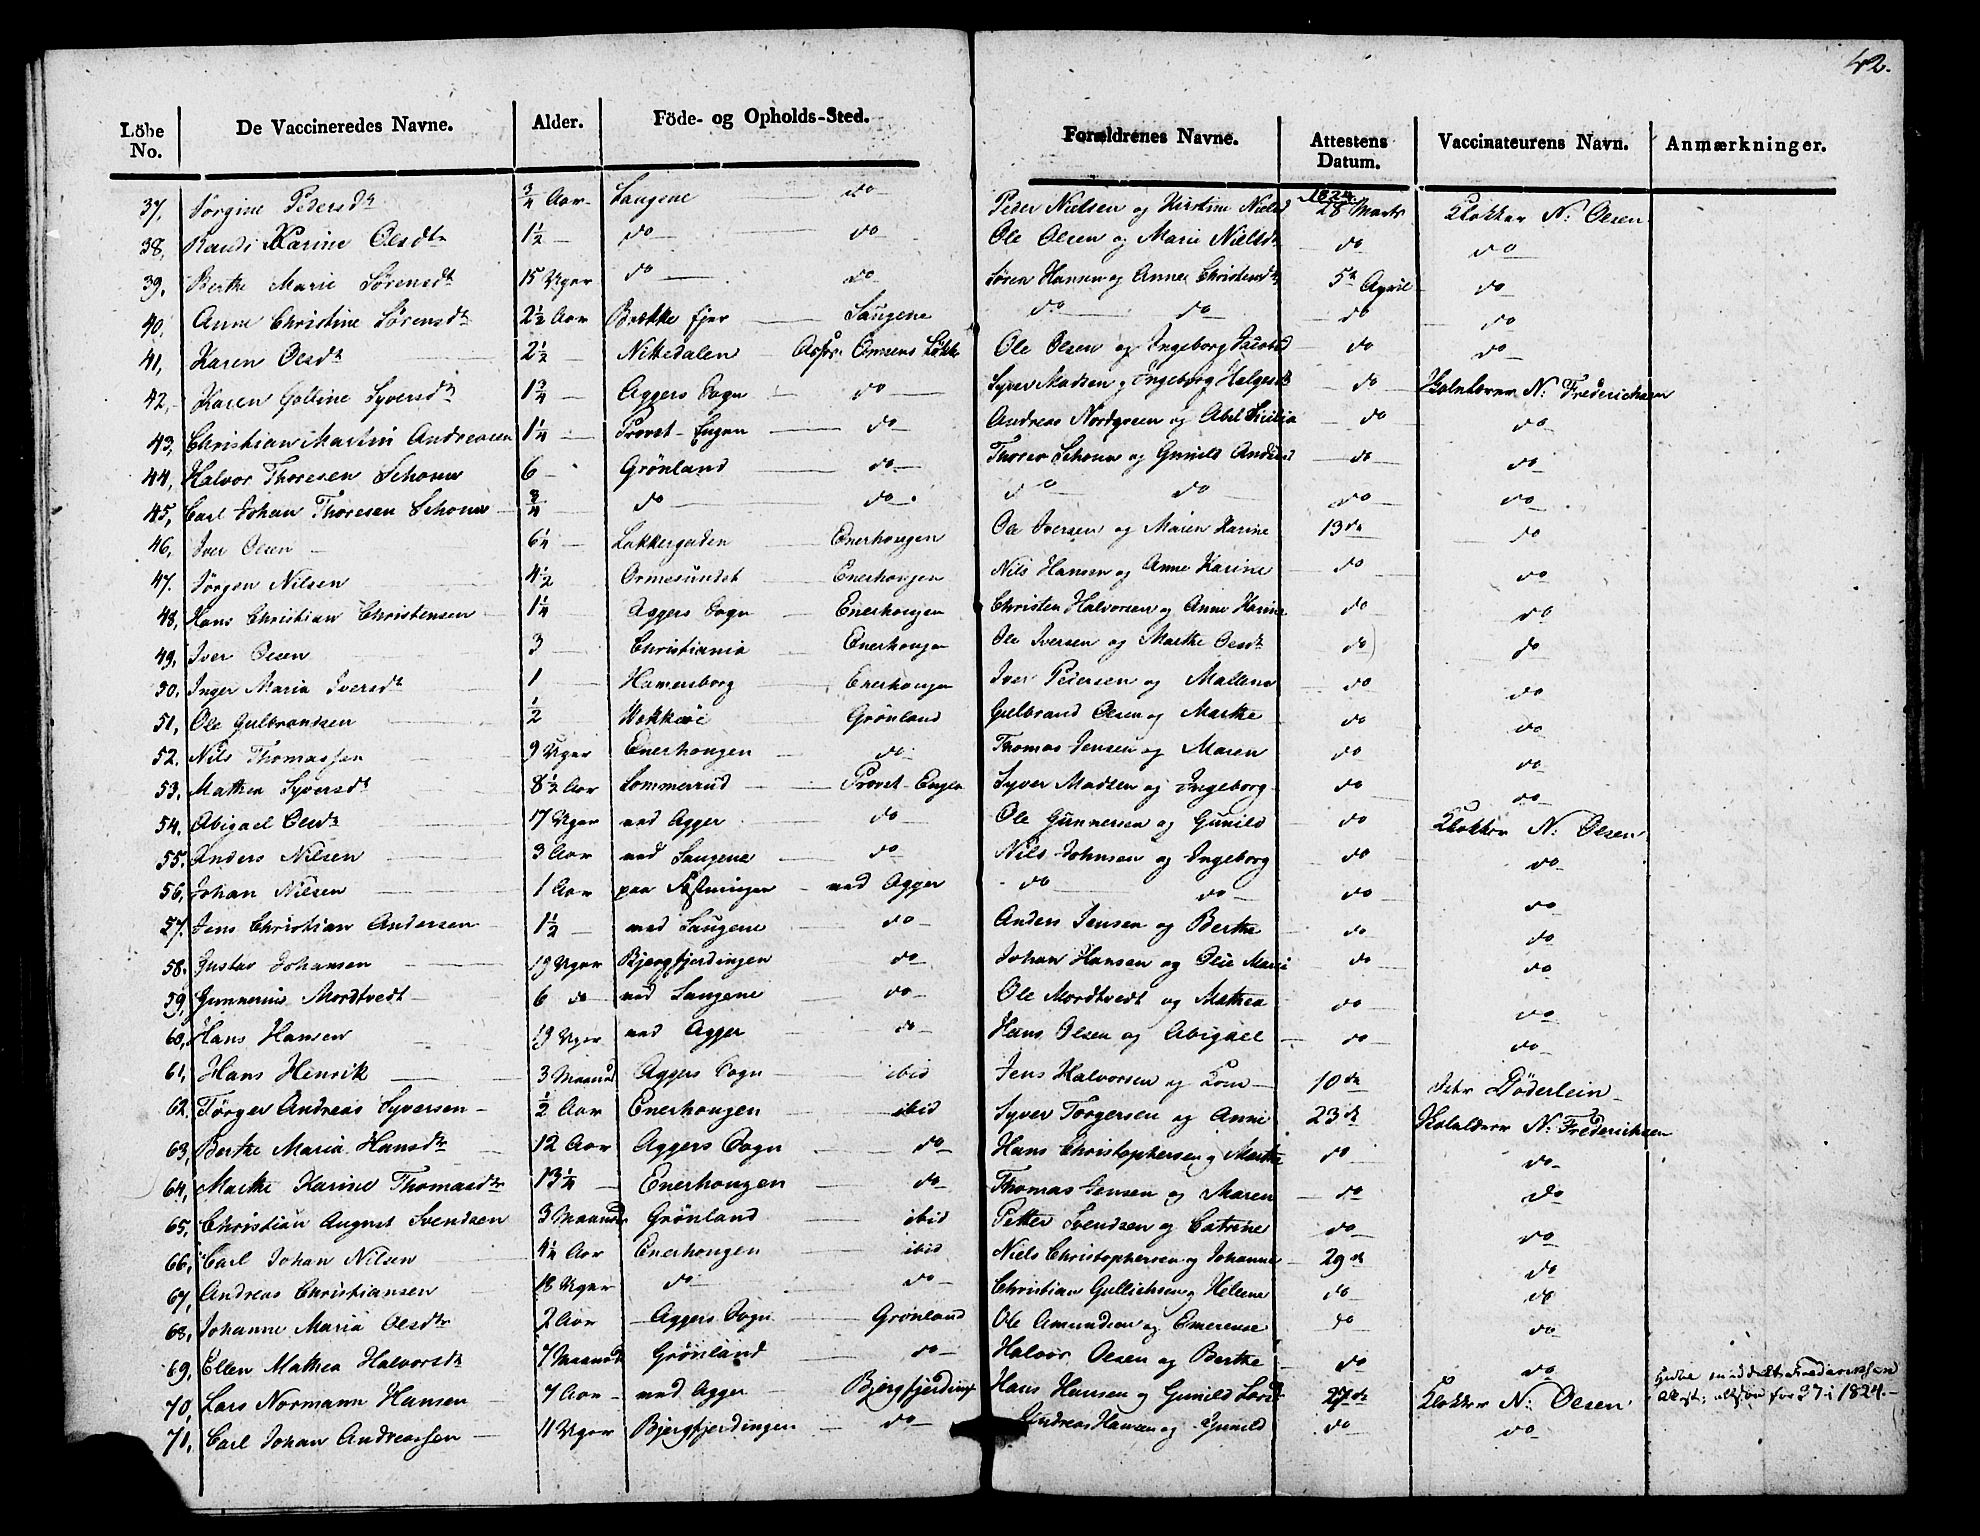 42.
Löbe No. De Vaccineredes Navne. Alder. Föde- og Opholds-Sted. Forældrenes Navne. Attestens Datum. Vaccinateurens Navn. Anmærkninger.
1824
37, Jørgine Pedersdtr 3/4 Aar Saugene do Peder Nielsen og Kirstine Nielsd 28 Marts Klokker N: Olsen
38, Randi Karine Olsdtr 1 1/2 do do Ole Olsen og Marie Nielsdtr do do
39, Berthe Marie Sørensdtr 15 Uger do do Søren Hansen og Anne Christensdtr 5te April do
40, Anne Christine Sørensdtr 2 1/2 Aar Bække Saugene do do do do
41, Karen Olsdtr 2 1/2 Nittedalen Løkke Ole Olsen og Ingeborg Jacobsd do do
42, Karen Goline Syversdtr 1 3/4 Aggers Sogn do Syver Madsen og Ingeborg Helgesdtr do N: Frederichsen
43, Christian Martin Andreasen 1 1/4 Provst-Engen do Andreas Nordgreen og Abel Sicilia do do
44, Halvor Thoresen Schou 6 Grönland do Thores Schou og Gunild Andersd do do
45, Carl Johan Thoresen Schou 3/4 do do do do do do
46, Iver Olsen 6 1/4 Lakkergaden Enerhougen Ole Iversen og Maren Karine 13de do
47. Jørgen Nilsen 4 1/2 Ormesundet Enerhougen Nils Hansen og Anne Karine do do
48, Hans Christian Christensen 1 1/4 Aggers Sogn Enerhougen Christen Halvorsen og Anne Karine do do
49, Iver Olsen 3 Christiania Enerhougen Ole Iversen og Marthe Olsdtr do do
50, Inger Maria Iversdtr 1 Hamersborg Enerhougen Iver Petersen og Mallene do do
51, Ole Gulbrandsen 1/2 Vekkerøe Grönland Gulbrand Olsen og Marthe do do
52. Nils Thomassen 9 Uger Enerhougen do Thomas Jensen og Maren do do
53, Mathea Syversdtr 8 1/2 Aar Sommerrud Provst-Engen Syver Madsen og Ingeborg do do
54, Abigael Olsdtr 17 Uger ved Agger do Ole Gunnersen og Gunild do Klokker N: Olsen
55. Anders Nilsen 3 Aar ved Saugene do Nils Johnsen og Ingeborg do do
56, Johan Nilsen 1 Aar paa Festningen ved Agger do do do do
57. Jens Christian Andersen 1 1/2 ved Saugene do Anders Jensen og Berthe do do
58. Gustav Johansen 19 Uger Bjergfjerdingen do Johan Hansen og Olie Marie do do
59, Gunnerius Mordtvedt 6 do ved Saugene do Ole Mordtvedt og Mathea do do
60, Hans Hansen 19 Uger ved Agger do Hans Olsen og Abigael do do
61, Hans Henrik 3 Maaned Aggers Sogn ibid Jens Halvorsen og Kone 10de Döderlein
62. Törger Andreas Syversen 1/2 Aar Enerhougen ibid Syver Torgersen og Anne 23de N: Frederichsen
63, Berthe Maria Hansdtr 12 Aar Aggers Sogn do Hans Christophersen og Marthe do do
64, Marthe Karine Thomasdtr 13 1/4 Enerhougen do Thomas Jensen og Maren do do
65, Christian August Svendsen 3 Maaneder Grönland ibid Petter Svendsen og Catrine do do
66, Carl Johan Nilsen 4 1/4 Aar Enerhougen ibid Niels Christophersen og Johanne 29de do
67, Andreas Christiansen 18 Uger do do Christian Gullichsen og Helene do do
68, Johanne Maria Olsdtr 2 Aar Aggers Sogn Grönland Ole Amundsen og Emerense do do
69, Ellen Mathea Halvorsdtr 7 Maaneder Grönland do Halvor Olsen og Berthe do do
70, Lars Normann Hansen 7 Aar ved Agger Bjergfjerding Hans Hansen og Gunild Larsd 27de Klokker N: Olsen for 37 i 1824.
71, Carl Johan Andreassen 11 Uger Bjergfjerdingen do Andreas Hansen og Gunild do do